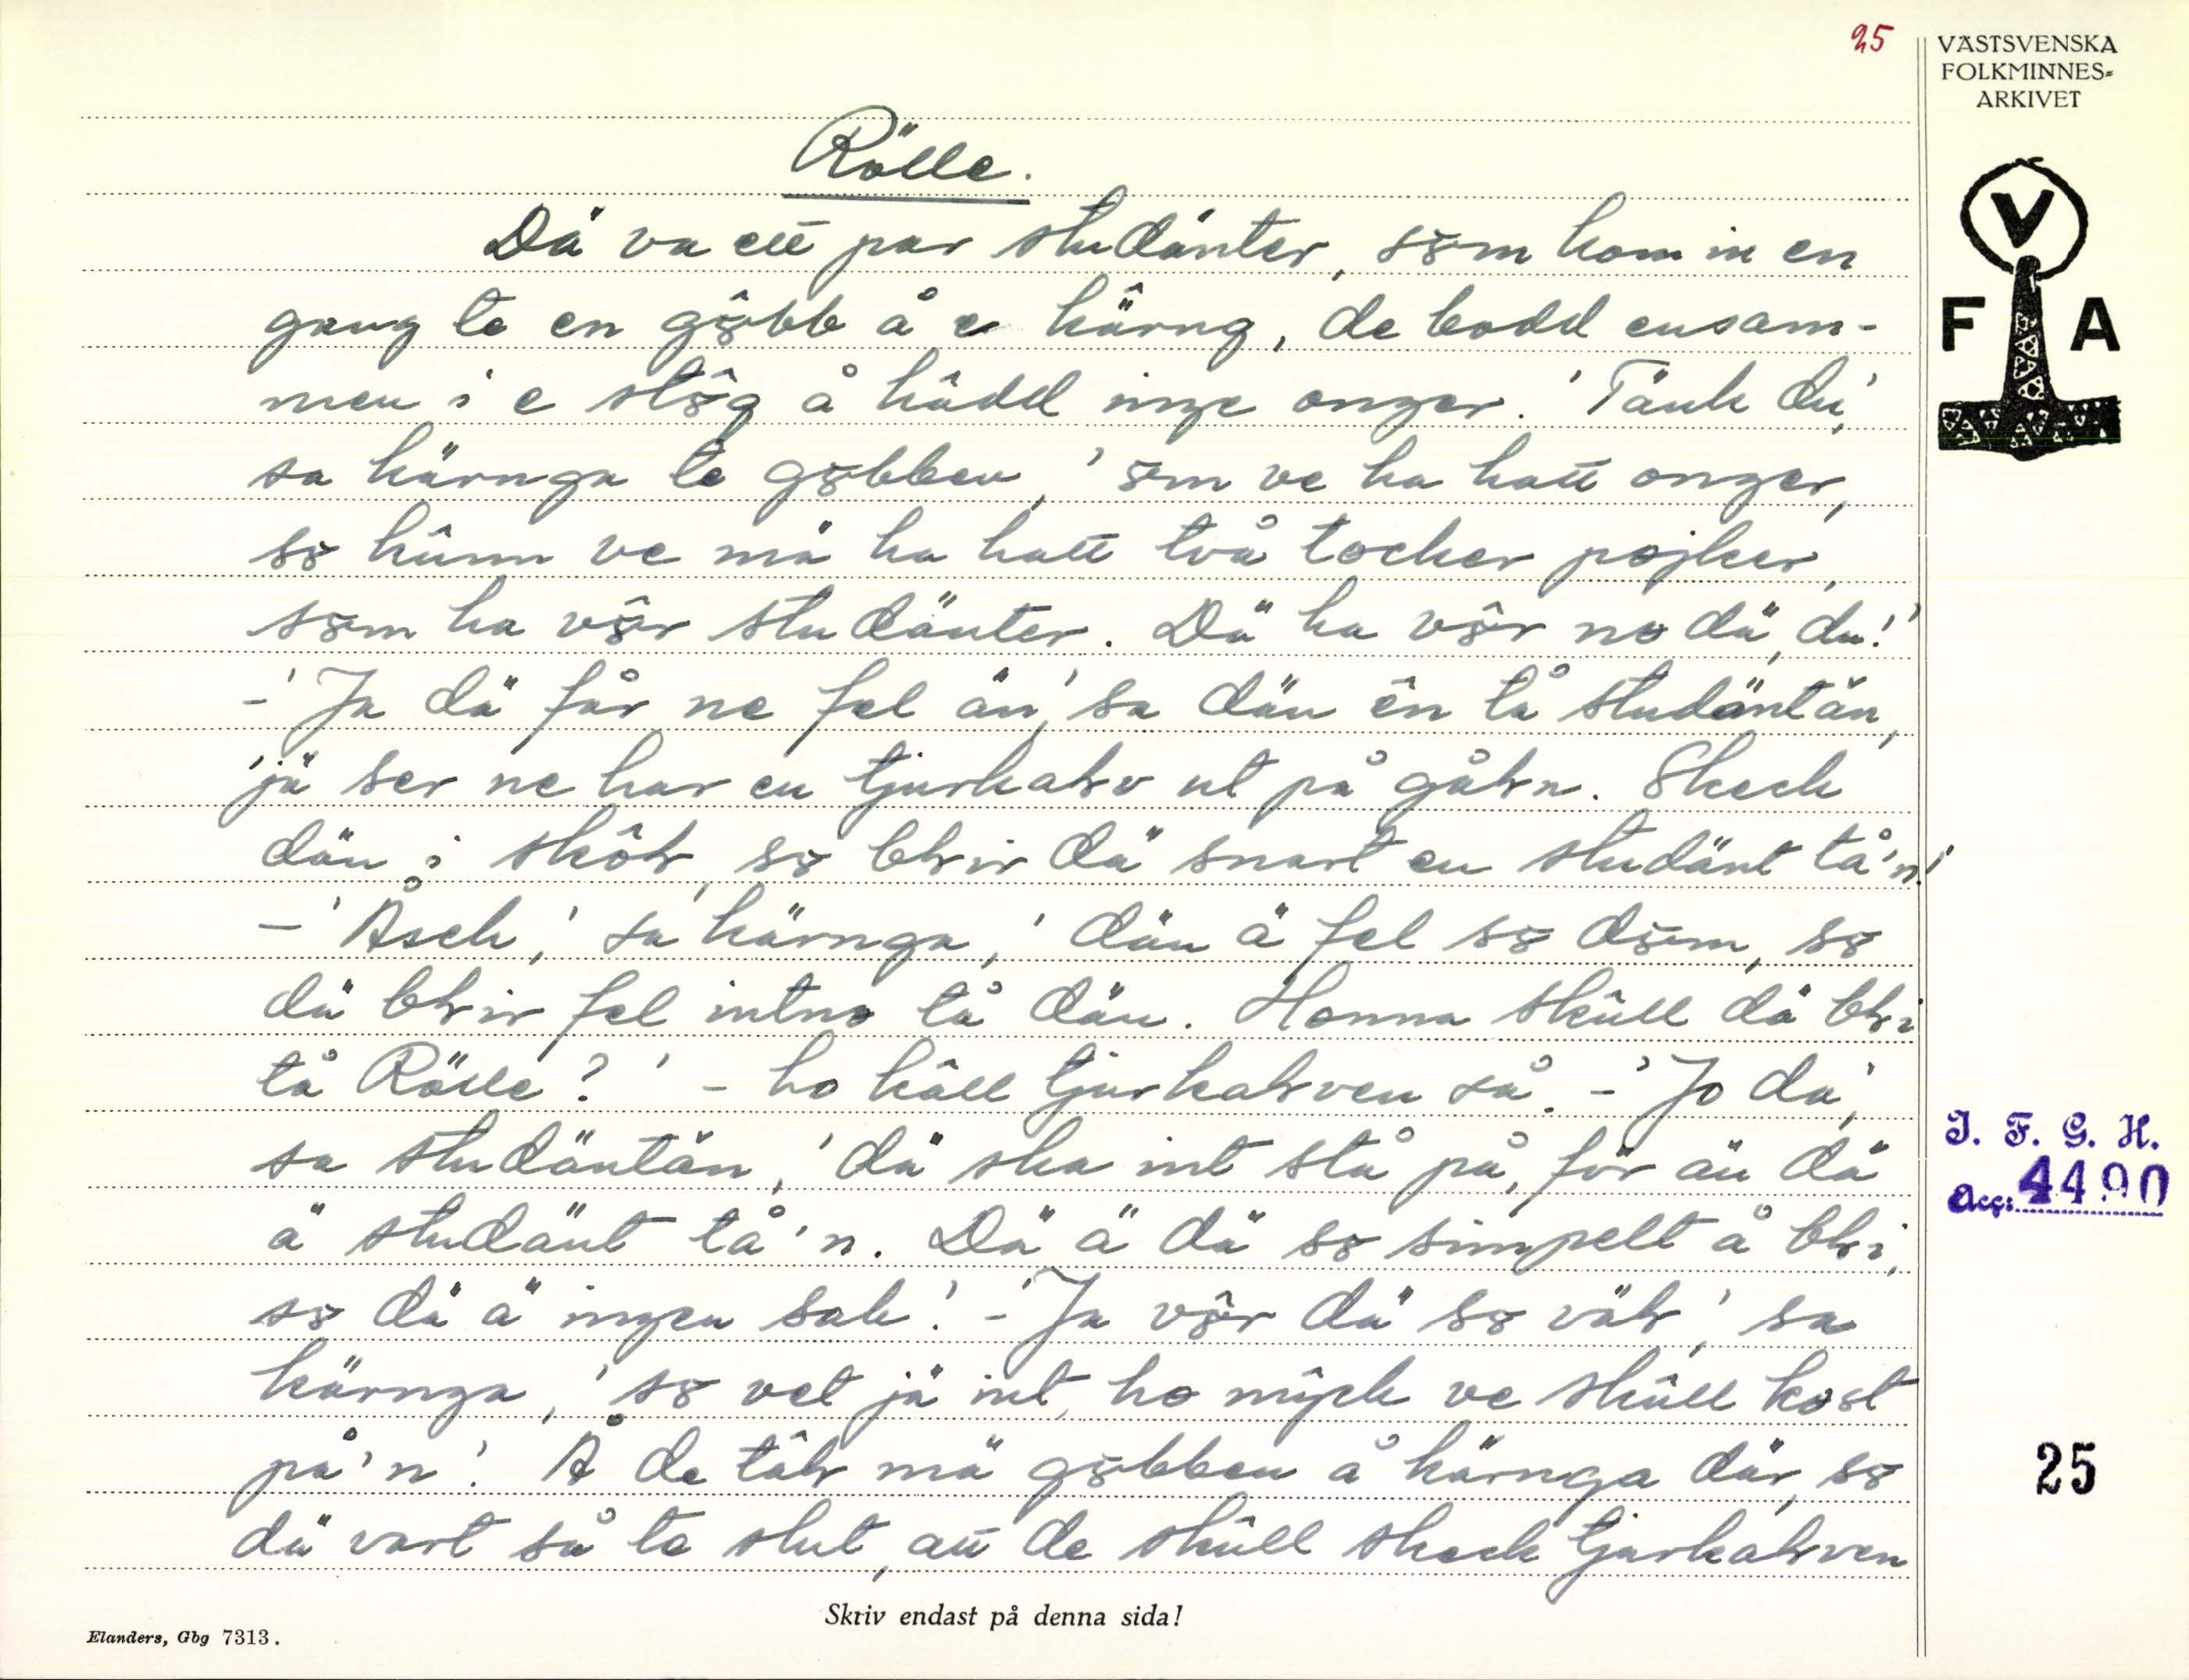 25
VÄSTSVENSKA
FOLKMINNES-
ARKIVET
V
F A
Rölle.
Dä va ett par studänter, sôm kom in en
gang te en gôbb å e kärng, de bodd ensam-
men i e stôg å hâdd inge onger. 'Tänk du,'
sa kärnga te gôbben, 'ôm ve ha hatt onger,
sô kûnn ve mä ha hatt två tocker pojker,
sôm ha vôr studänter. Dä ha vôr no dä, du!'
-'Ja dä får ne fel än,' sa dän ên tå studäntän,
'jä ser ne har en tjurkalv ut på gåln. Skeck
dän i skôl, sô blir dä snart en studänt tå'n!'
-'Äsch,' sa kärnga, 'dän ä fel sô dôm, sô
dä blir fel intno tå dän. Honna skûll dä bli
tå Rölle?' - ho kâll tjurkalven så. -'Jo dä,'
sa studäntän, 'dä ska int stå på, för än dä
ä studänt tå'n. Dä ä dä sô simpelt å bli,
sô dä ä ingen sak.' -'Ja vôr dä sô väl,' sa
kärnga, 'sô vet jä int, ho mŷck ve skûll kost
på'n'. Å de tâl mä gôbben å kärnga där, sô
dä vart så te slut, att de skûll skeck tjurkalven
Skriv endast på denna sida!
Elanders, Gbg 7313.
I. F. G. H.
Acc: 4490
25